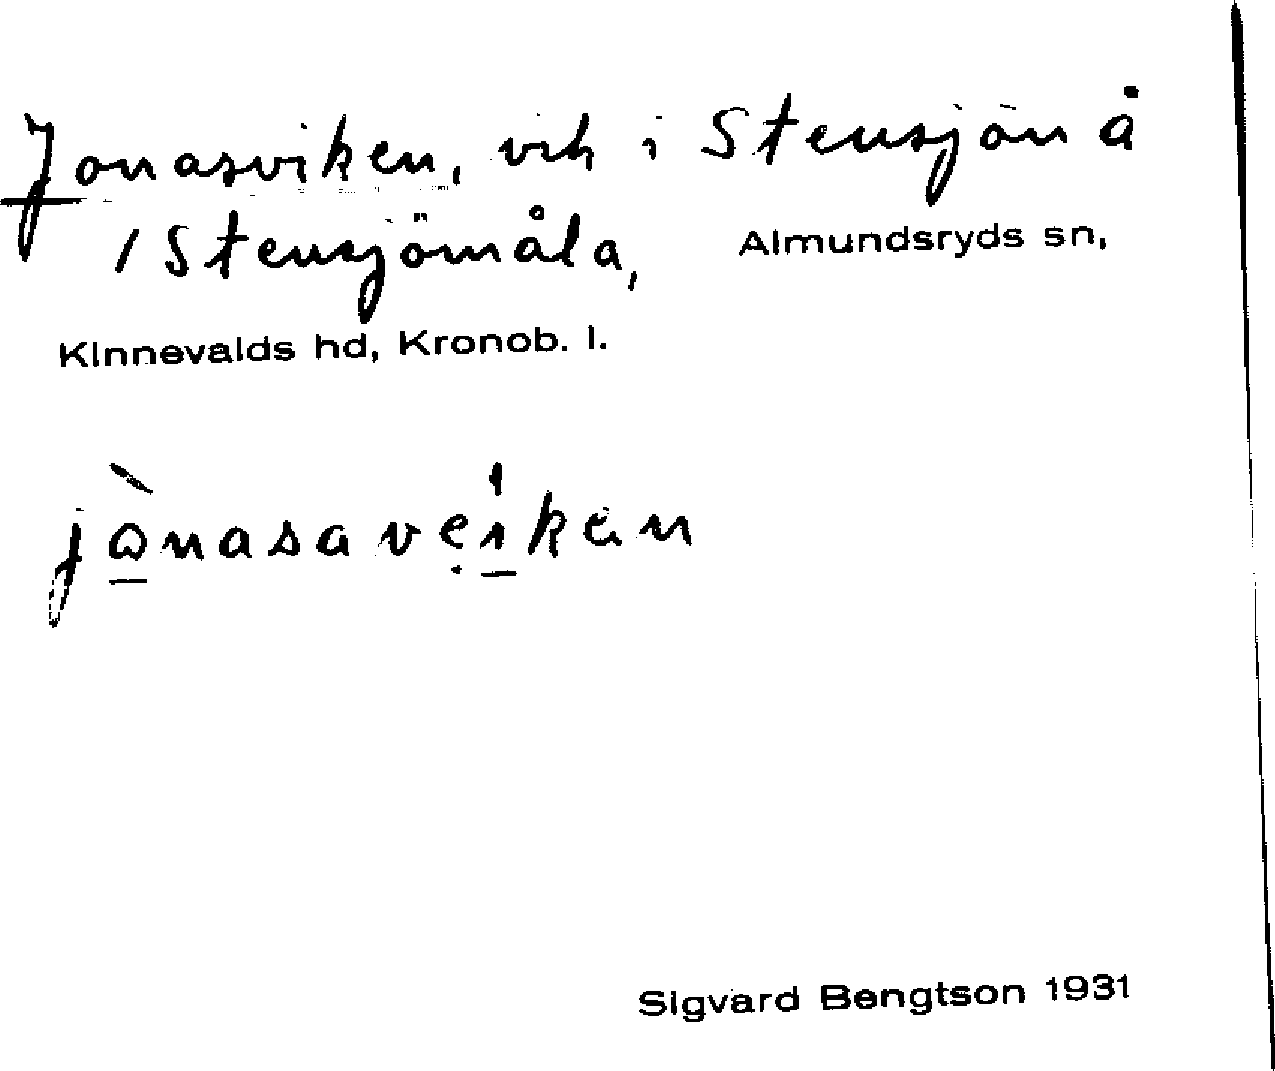 Jonasviken, vik i Stensjön å
/ Stensjömåla, Almundsryds sn,
Kinnevalds hd, Kronob. l.
jònasaveikan
Sigvard Bengtson 1931